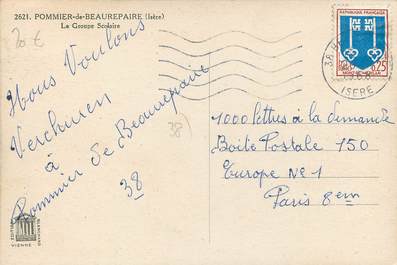 2621. POMMIER-de-BEAUREPAIRE (Isère)
Le Groupe Scolaire
20 €
Nous Voulons
Verchuren
à
Pommier de Beaurepaire
38
38
REPUBLIQUE FRANÇAISE
0,25
MONT-DE-MARSAN
38
ISERE
1000 lettres à la demande
Boite Postale 150
Europe No 1
Paris 8em
VIENNE